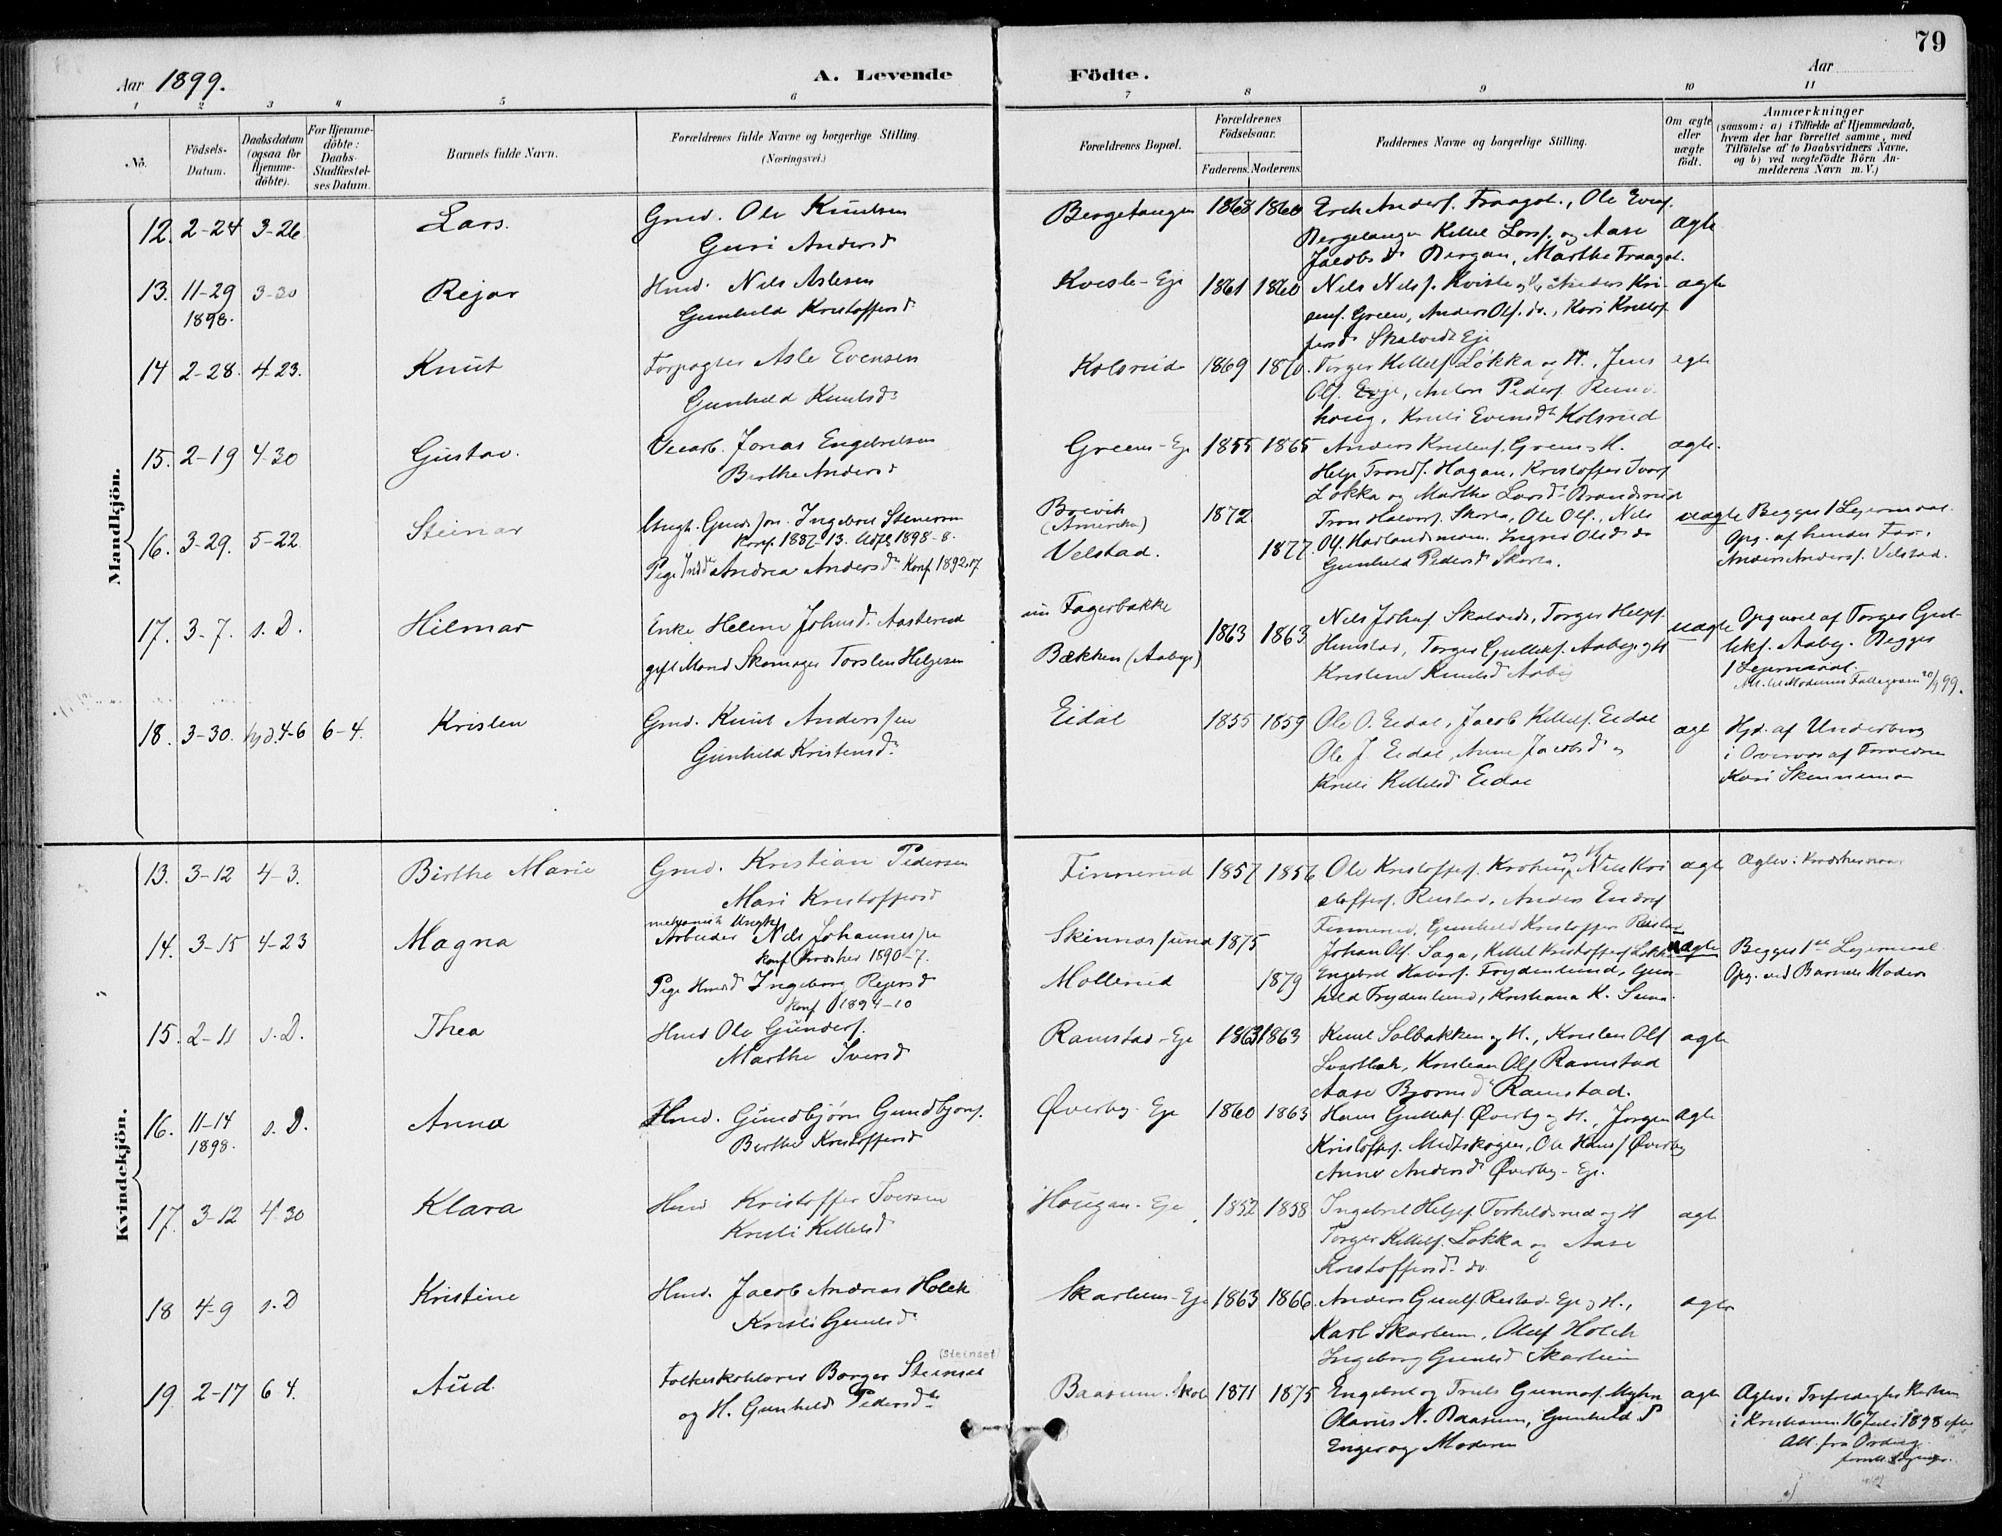 79
Aar 1899.
A. Levende Födte.
Aar
1 2 3 4 5 6 7 8 9 10 11
No.
Födsels-Datum.
Daabsdatum (ogsaa for Hjemme-döbte).
For Hjemme-döbte: Daabs-Stadfæstel-ses Datum.
Barnets fulde Navn.
Forældrenes fulde Navne og borgerlige Stilling.
(Næringsvei.)
Forældrenes Bopæl.
Forældrenes Födselsaar.
Faderens. Moderens.
Faddernes Navne og borgerlige Stilling.
Om ægte eller uægte født.
Anmærkninger
(saasom: a) i Tilfælde af Hjemmedaab,
hvem der har forrettet samme, med
Tilföielse af to Daabsvidners Navne,
og b) ved uægtefödte Börn An-
melderens Navn m. V.)
Mandkjön.
12. 2-24 3-26 Lars. Gmd. Ole Knudsen
Guri Andersd
Bergetangen 1868 1860
Erik Andersf. Fraagot., Ole Evensf.
Bergetangen Kittel Larsf. og Aase
Jacobsd. Bergan, Marthe Fraagot.
ægte
13. 11-29 1898. 3-30 Rejar Hmd. Nils Aslesen
Gunhild Kristoffersd.
Kvisle-Eje 1861 1860
Nils Nilsf. Kvisle og H., Anders Kri-
stenf. Green, Anders Olf. do., Kari Kristof-
fersd. Skalveds Eje
ægte
14 2-28. 4-23. Knut Forpagter Asle Evensen
Gunhild Knutsd.
Kolsrud 1869 1870.
Torger Kittelf. Løkka og H., Jens
Olf. Eje, Anton Pedersf.
houg, Kristi Evensd. Kolsrud
egte
15. 2-19 4-30 Gustav. Veiarb. Jonas Engebretsen
Birthe Andersd
Greens-Eje 1855 1865
Anders Kristenf. Green og H.
Helge Trondf. Hagan, Kristoffer Ivarf.
Løkka og Marthe Larsd. Brandsrud
ægte.
16. 3-29. 5-22 Steinar Ungk. Gmdsøn. Ingebret Steneren
Konf. 1887-13. Udfl. 1898-8.
Pige Indd. Andrea Andersd. Konf. 1892-17
Brevik (Amerika)
Velstad.
1872 1877
Tron Halvorf. Skarta, Ole Olf., Nils
Olf. Haslandsmoen. Ingrid Olsd. do
Gunhild Pedersd. Skarta.
uægte Begges 1 Leiermaal.
Opg. af hendes Far,
Anders Andersf. Velstad.
17. 3-7. s. D. Hilmar Enke Helene Johnsd. Aasterud
gift Mand Skomager Torsten Helgesen
Fagerbakke
Bækken (Aaby)
1863 1863
Nils Johnf. Skalveds, Torger Helgef.
Hunstad, Torger Gulliksf. Aaby og H.
Kristine Knutsd. Aaby
uægte Opg. af Torger Gul-
likf. Aaby. Begges
1 Leiermaal.
18. 3-30. hjd. 4-6 6-4. Kristen Gmd. Knut Anderssen
Gunhild Kristensd.
Eidal 1855 1859
Ole O. Eidal, Jacob Kittelf. Eidal
Ole J. Eidal, Anne Jacobsd. og
Kristi Kittelsd. Eidal
ægte Hjd. af Underberg
i Overvær af
Kari Skinnemoen
Kvindekjön.
13. 3-12 4-3. Birthe Marie Gmd. Kristian Pedersen
Mari Kristoffersd
Finnerud 1857 1856
Ole Kristoffersf. Krohn og H., Nils Kri-
stoffersf. Rustad, Anders Endref.
Finnerud, Gunhild Kristoffersd. Rustad
ægte
14. 3-15 4-23 Magna mekanisk Ungk.
Arbeider Nils Johannessen
Konf. Kroksher 1890-7.
Pige Hmdd. Ingeborg Rejersd
Konf. 1894-10
Skinnessund
Mollerud
1875 1879
Johan Olf. Saga, Kittel Kristoffersf. Løkka
Engebret Halvorf. Frydenlund, Gun-
hild Frydenlund, Kristiana K.
uægte Begges 1ste Leiermaal
Opg. ved Barnets Moder
15. 2-11 s. D. Thea Hmd Ole Gundersf.
Marthe Iversd
Ramstad-Eje 1863 1863
Knut Solbakken og H., Kristen Olf.
Svartbæk, Kristian Olf. Ramstad
Aase Bjørnsd. Ramstad.
ægte
16. 11-14 1898. s. D. Anna Hmd. Gundbjørn Gundbjørnf.
Berthe Kristoffersd
Øverby-Eje 1860 1863
Hans Gulliksf. Øverby og H., Jørgen
Kristoffersf. Midtskogen, Ole Hansf. Øverby
Anne Andersd. Øverby-Eje.
ægte
17. 3-12 4-30 Klara Hmd Kristoffer Iversen
Kristi Kittelsd.
Hougan-Eje 1852 1858
Ingebret Helgef. Torkildsrud og H
Torger Kittelf. Løkka og Aase
Kristoffersd. do
ægte
18 4-9 s. D Kristine Hmd. Jacob Andreas Holck
Kristi Gunulsd.
Skarheim-Eje 1863 1866
Anders Gunulf. Restad-Eje og H.,
Karl Skarheim, Oluf Holck
Ingeborg Gunulsd. Skarheim
ægte
19. 2-17 6 4. Aud. (Steinset)
Folkeskolelærer Borger Steinset
og H. Gunhild Pedersd.
Baasum Skole 1871 1875
Engebret og Truls Gunnarf. Myhra
Olavus N. Baasum, Gunhild P.
Enger og Moderen
ægte Ægtev. i Trefoldighets Kirken
i Kristiania 16 Juli 1898 efter
Att. fra